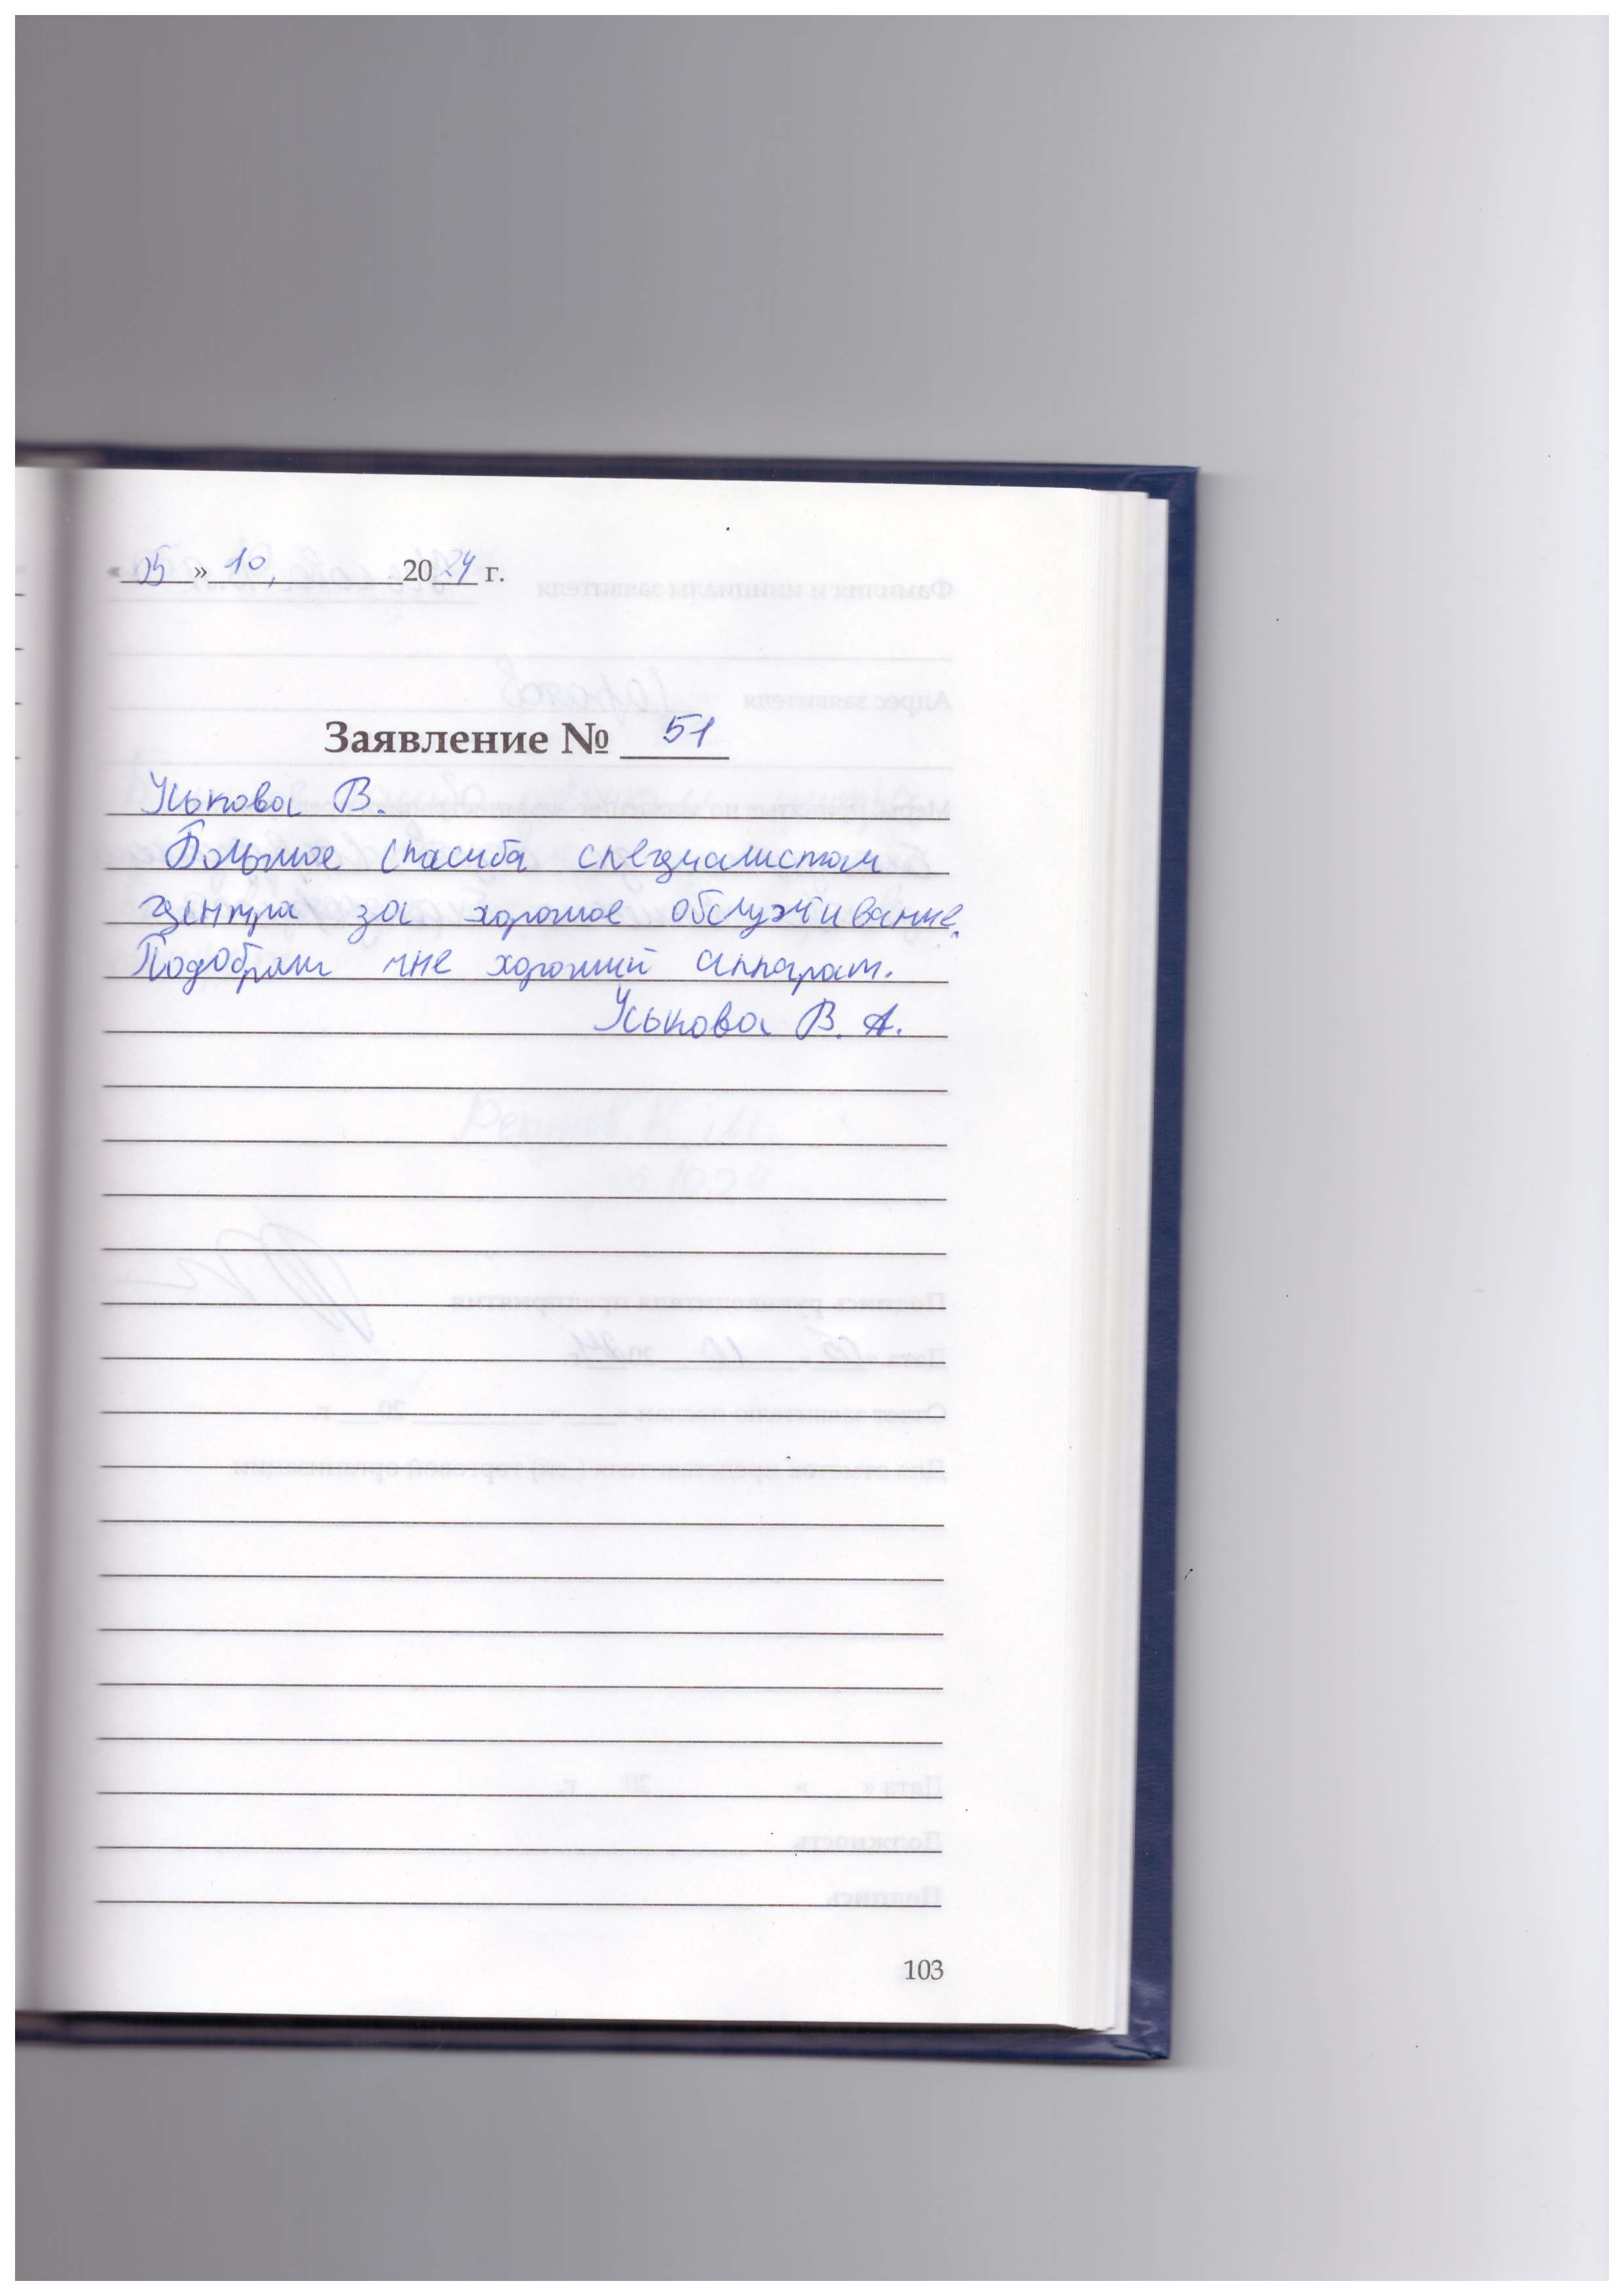 «05» 10, 2024 г.
Заявление № 51
Уськова В.
Большое спасиба специалистам
центра за хорошое обслуживание.
Подобрали мне хороший аппарат.
Уськова В. А.
103